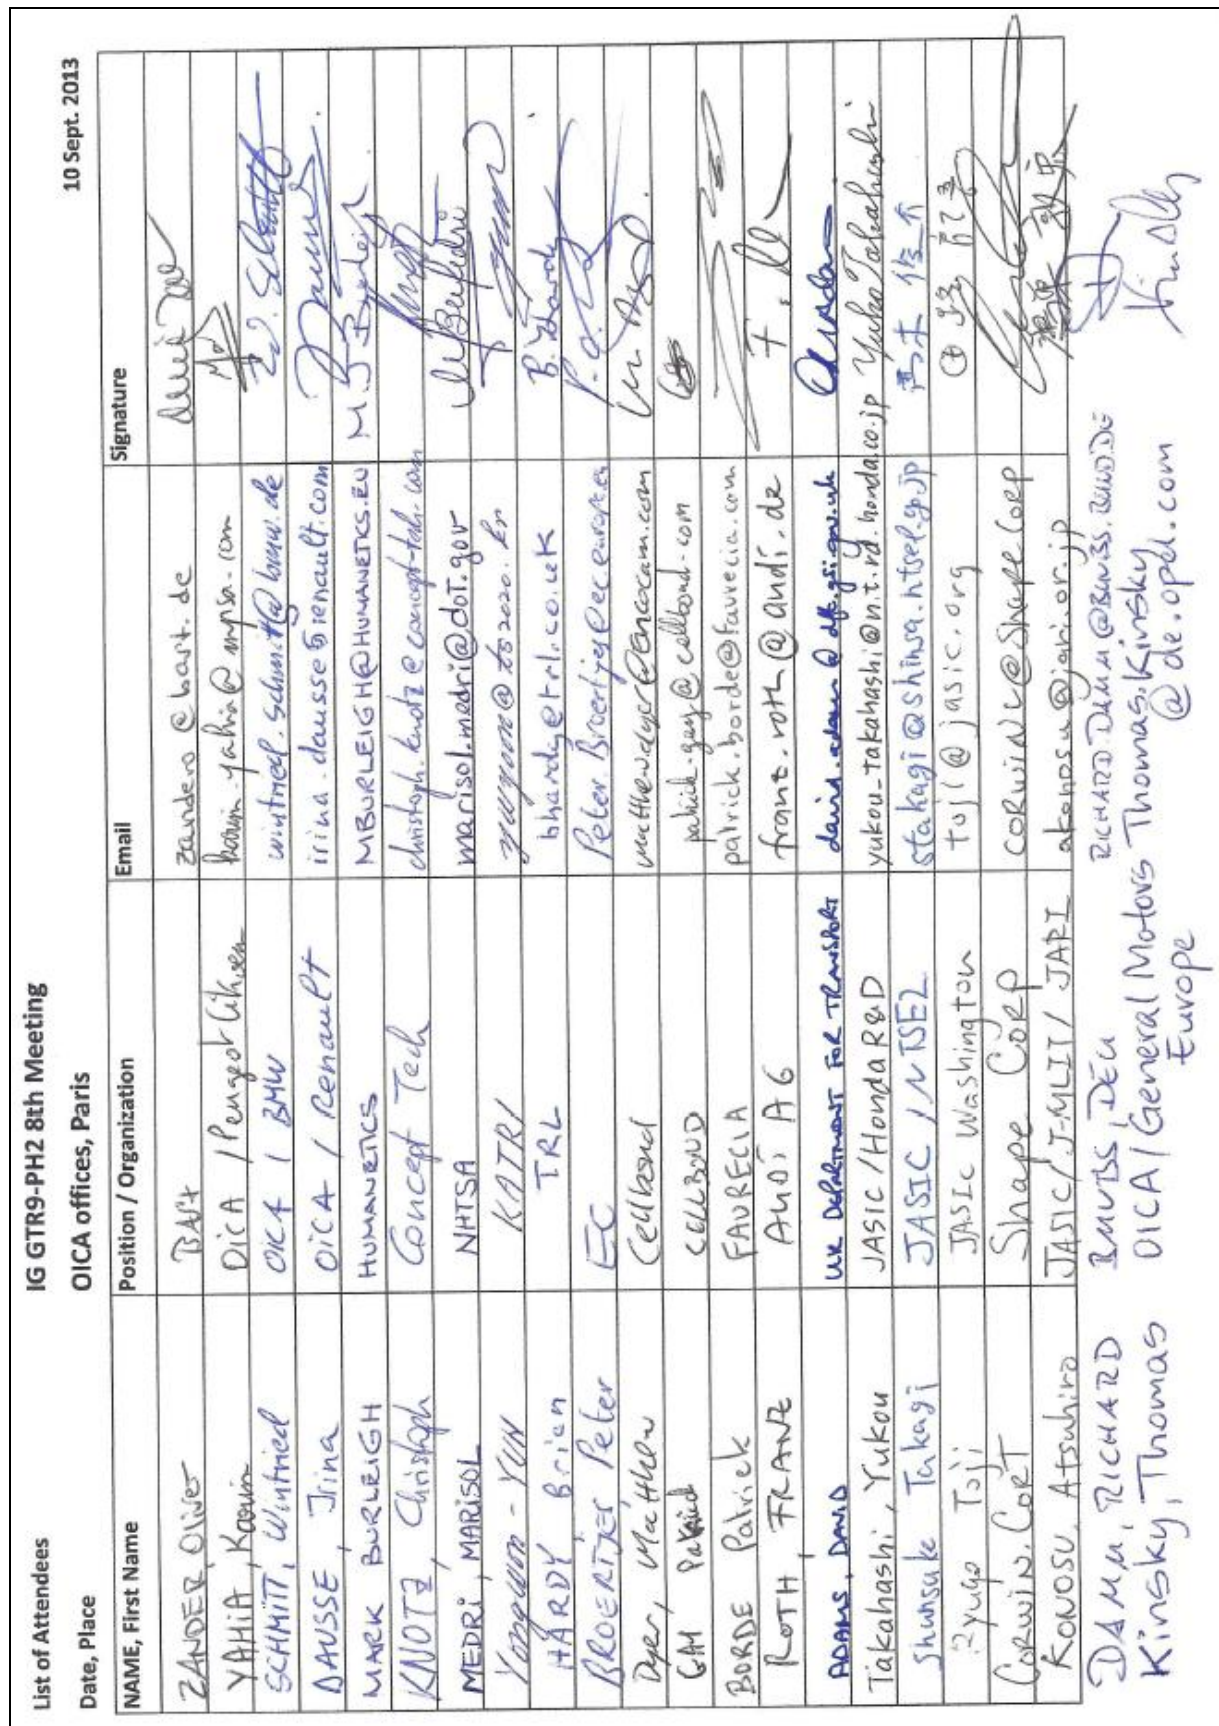 List of Attendees IG GTR9-PH2 8th Meeting 10 Sept. 2013
Date, Place OICA offices, Paris
NAME, First Name Position / Organization Email Signature
ZANDER, Oliver BASt zandero@bast.de
YAHIA, Karim OICA / Peugeot
SCHMITT, Winfried OICA / BMW winfried.schmitt@bmw.de W. Schmitt
DAUSSE, Irina OICA / Renault Dausse
MARK BURLEIGH HUMANETICS MBURLEIGH@HUMANETICS.EU M. Burleigh
KNOTZ, Christoph Concept Tech christoph.knotz@concept-tech.com
MEDRI, MARISOL NHTSA marisol.medri@dot.gov
Yongwon-YUN KATRI
HARDY Brian TRL bhardy@trl.co.uk B. Hardy
BROERTJES Peter EC Peter.Broertjes@ec.europa.eu
Dyer, Matthew Cellbond matthewdyer@Encocam.com
Patrick CELLBOND
BORDE Patrick FAURECIA patrick.borde@faurecia.com
ROTH, FRANZ AUDI AG franz.roth@audi.de
ADAMS, DAVID UK DEPARTMENT FOR TRANSPORT
Takahashi, Yukou JASIC/Honda R&D yukou_takahashi@n.t.rd.honda.co.jp Yukou Takahashi
Shunsuke Takagi JASIC / NTSEL stakagi@shinsa.ntsel.go.jp 高木 俊介
Ryugo Toji JASIC Washington toji@jasic.org
CORWIN, CORT Shape CORP CORWINC@ShapeCorp
KONOSU, Atsuhiro JASIC/J-MLIT/JARI akonosu@jari.or.jp
DAMM, RICHARD BMVBS, DEU RICHARD.DAMM@BMVBS.BUND.DE
Kinsky, Thomas OICA/General Motors Europe Thomas.Kinsky@de.opel.com